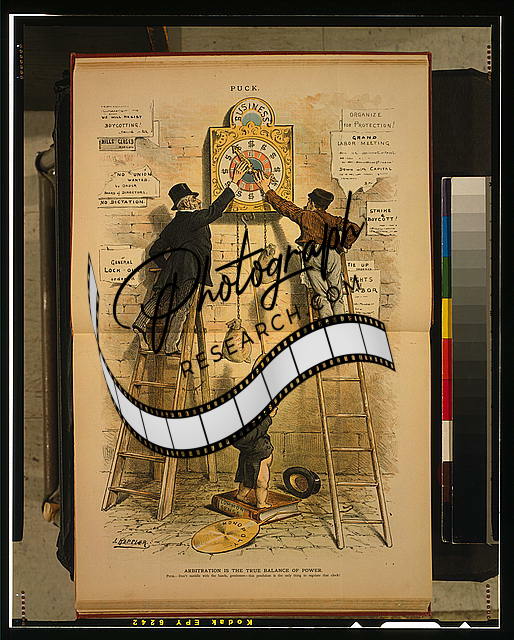 PUCK.
BUSINESS
WE WILL RESIST
BOYCOTTING!
MILLS CLOSED
NO UNION
WANTED.
by ORDER
BOARD of DIRECTORS.
NO DICTATION.
GENERAL
LOCK-OU
ORGANIZE
for PROTECTION!
GRAND
LABOR MEETING
DOWN with CAPITAL
STRIKE
BOYCOTT!
TIE UP
GHTS
ABOR
Photograph
RESEARCH.COM
MONOPOL
J. KEPPLER.
ARBITRATION IS THE TRUE BALANCE OF POWER.
PUCK.—Don't meddle with the hands, gentlemen—this pendulum is the only thing to regulate that clock!
Kodak EPY 6242